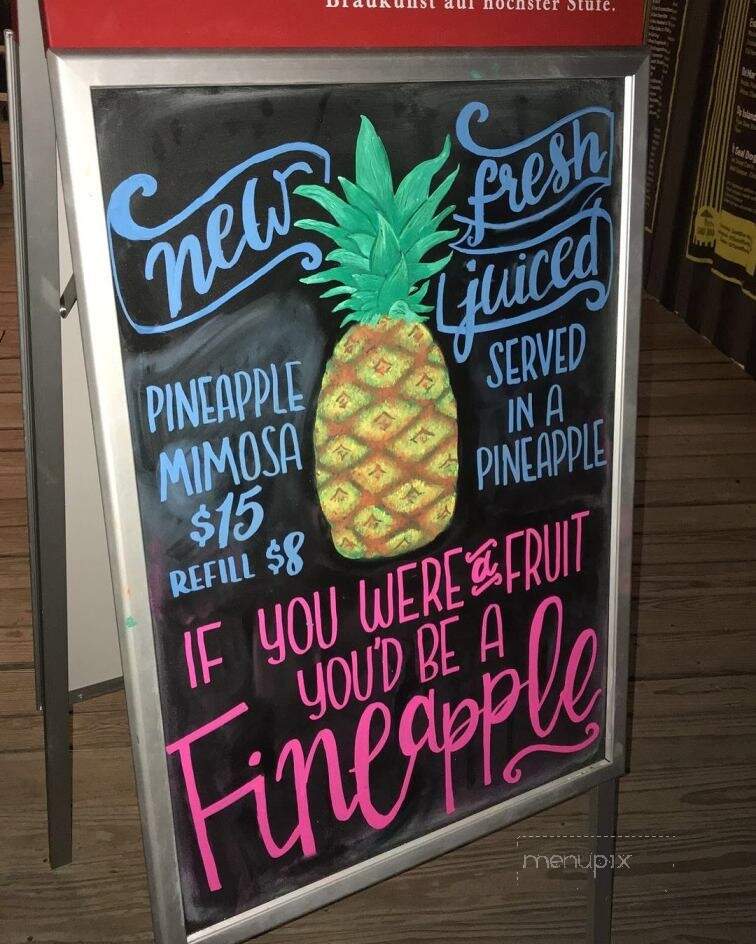 Braukunst auf höchster Stufe.
new
fresh
juiced
PINEAPPLE
MIMOSA
$15
REFILL $8
SERVED
IN A
PINEAPPLE
IF YOU WERE a FRUIT
YOU'D BE A
Fineapple
menupix